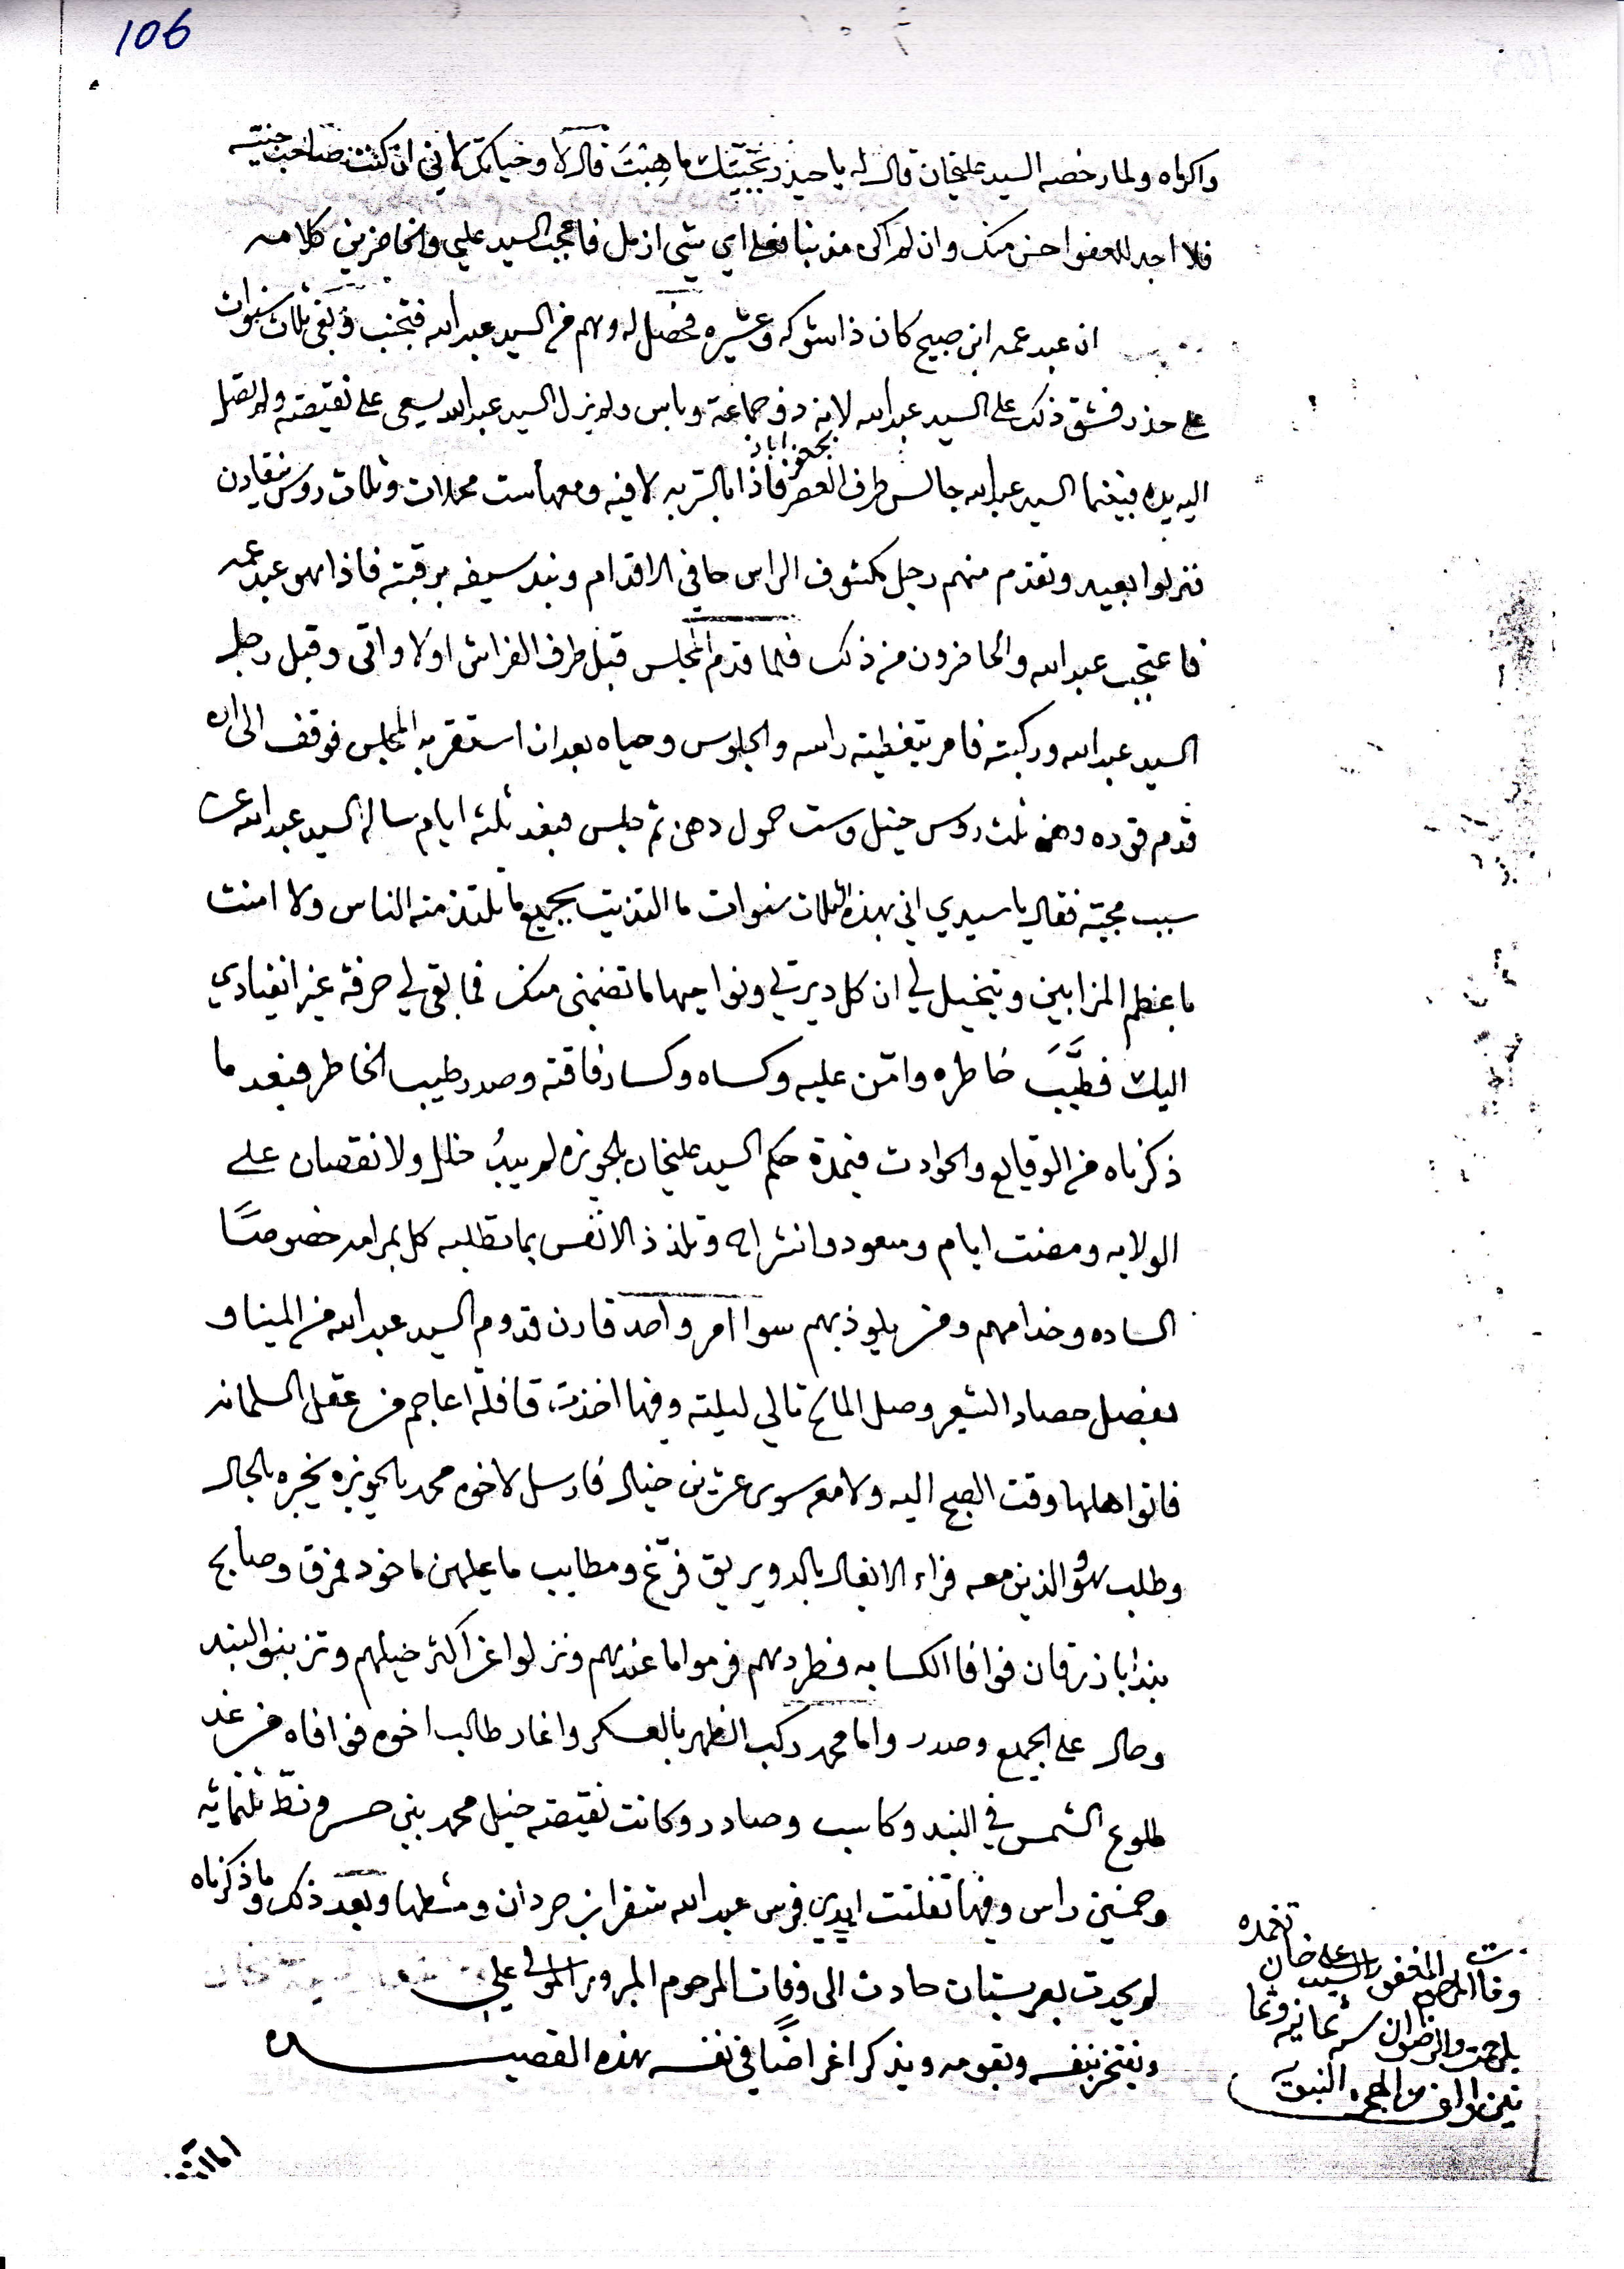 106
واكرماه ولما رخصه السيد عليخان قال له يا حيدر بجيتك ما هبت قال لا وحياتك لاني ان كنت صاحب جنيته
فلا اجد للعفوا احسن منك وان لم اكن مذنبا فعلى اي شي ازعل فاعجب السيد علي والحاضرين كلامه
ان عبد عمه ابن صبيح كان ذا شوكه وعشيره فحصل له وهم من السيد عبد الله فتجنب وبقي ثلاث سنوات
على حذر فشق ذلك على السيد عبد الله لانه ذو جماعة وباس ولم يزل السيد عبد الله يسعى على نقيصته ولم تصل
بجعفر اباد
اليه يده فبينما السيد عبد الله جالس طرف العصر فاذا بالتربه لافيه ومعها ست محملات وثلاث روس ينقادن
فنزلوا بعيد وتقدم منهم رجل مكشوف الراس حافي الاقدام وبند سيفه برقبته فاذا هو عبد عمه
فاعتجب عبد الله والحاضرون من ذلك فلما قدم المجلس قبل طرف الفراش اولا واتى وقبل رجل
السيد عبد الله وركبته فامر بتغطيته راسه والجلوس وحياه بعد ان استقر به المجلس فوقف الى ان
قدم قوده وهن ثلث روس خيل وست حمول دهن ثم جلس فبعد ثلثه ايام ساله السيد عبد الله عن
سبب مجيته فقال يا سيدي اني بهذه الثلاث سنوات ما التذيت بجميع ما يلتذ منه الناس ولا امنت
باعظم المزابين ويتخيل لي ان كل ديرتي ونواحيها ما تضمني منك فما بقي لي حرفة غير انقيادي
اليك فطيب خاطره وامن عليه وكساه وكسا رفاقته وصدر طيب الخاطر فبعد ما
ذكرناه من الوقايع والحوادث فيمدة حكم السيد عليخان بالحويزه لم يبد خلل ولا نقصان على
الولايه ومضت ايام وسعود وانشراح وتلذذ الانفس بما تطلبه كل بمرامه خصوصا
الساده وخدامهم ومن يلوذ بهم سوا امر واحد قارن قدوم السيد عبد الله من المينا و
بفصل حصاد الشعير وصل المالح تالي ليلته وفيها اخذت قافلة اعاجم من عقل السلمانه
فاتوا اهلها وقت الصبح اليه ولا معه سوى عشرين خيال فارسل لاخوه محمد بالحويزه يخبره بالحال
وطلب هو والذين معه فراء الانفال بالدويريق فرغ ومطايب ما عليهن ماخوذ مفرق وصابح
بنداباذ زرقان فوافا الكسابه فطردهم فرموا ما عندهم ونزلوا عن اكثر خيلهم وتزبنوا البند
وحال على الجميع وصدر واما محمد ركب الظهر بالعسكر واغار طالب اخوه فوافاه من غد
طلوع الشمس في البند وكاسب وصادر وكانت نقيصته خيل محمد بني حسن ونط ثلثمائه
وخمسين راس وفيها تفلتت ايدي فرس عبد الله شقرا بن حردان ومشطها وبعد ذلك وما ذكرناه
لم يحدث بعربستان حادث الى وفات المرحوم المبرور المولى علي
ويفتخر بنفسه وبقومه ويذكر اغراضا في نفسه بهذه القصيده
وفات المرحوم المغفور السيد علي خان تغمده
بالرحمة والرضوان سنه ثمانيه وثما
نين والف من الهجرة النبوية